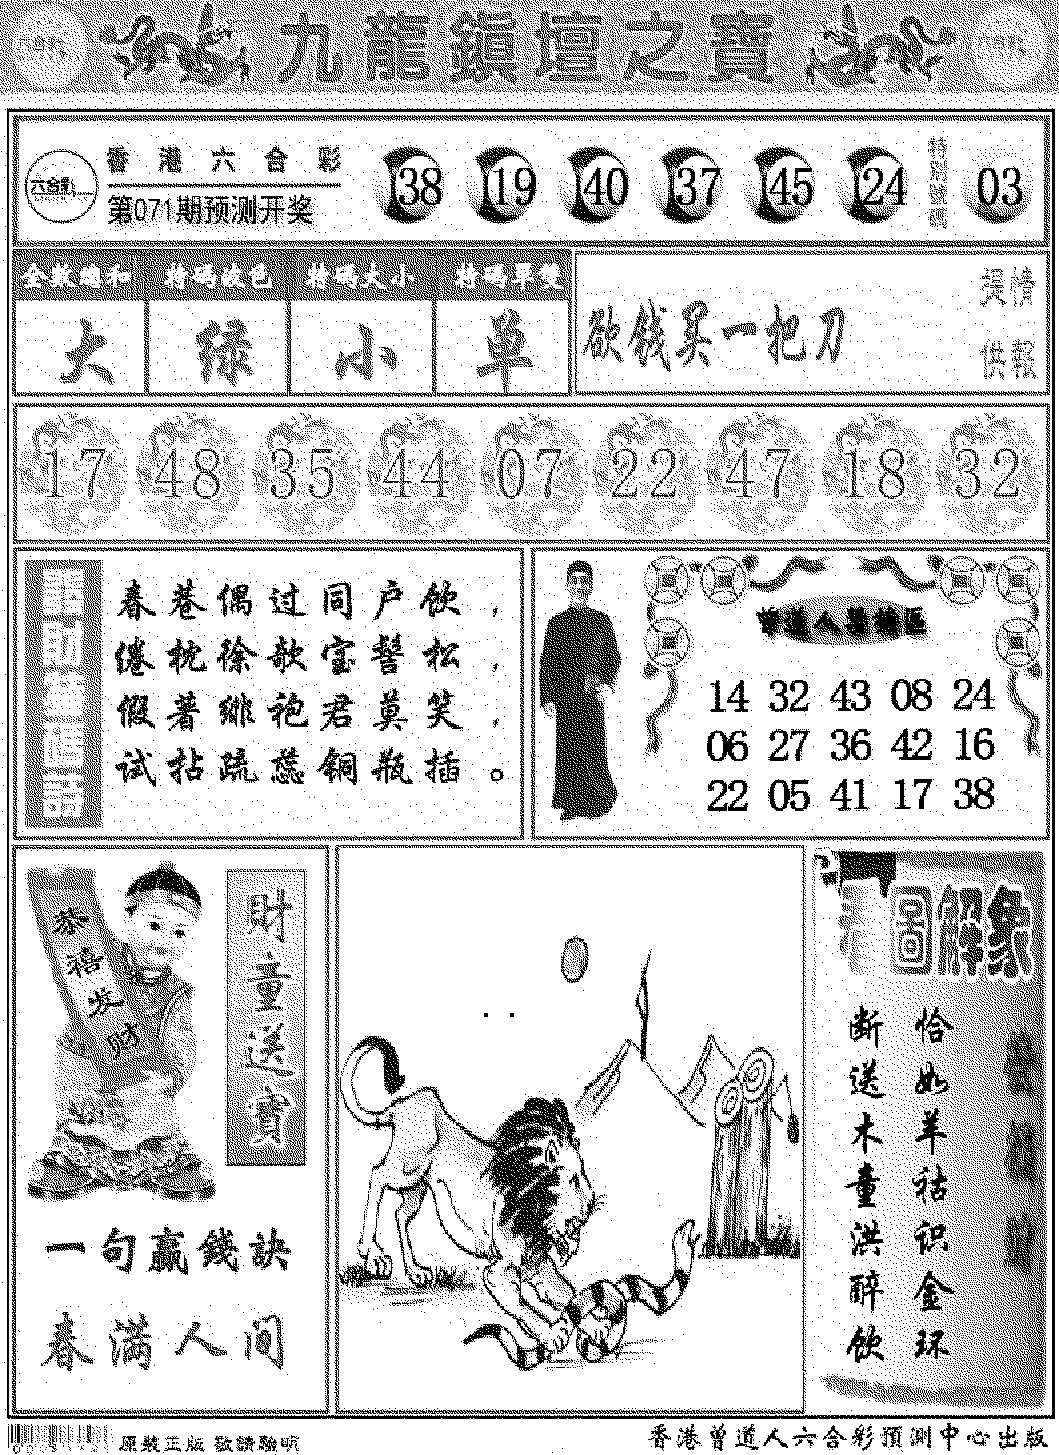 九龍鎮壇之寶
香港六合彩
六合彩
第071期预测开奖
38 19 40 37 45 24
特別號碼
03
全数總和 特码波色 特码大小 特码单雙
大 绿 小 单
欲钱买一把刀
提供
情報
17 48 35 44 07 22 47 18 32
春巷偶过同户饮，
倦枕徐欹宝髻松，
假著绯袍君莫笑，
试拈疏蕊铜瓶插。
14 32 43 08 24
06 27 36 42 16
22 05 41 17 38
恭禧发财
財童送寶
一句赢钱訣
春满人间
圖解象
恰如羊祜识金环
断送木童洪醉饮
原裝正版 敬請驗明
香港曾道人六合彩預測中心出版